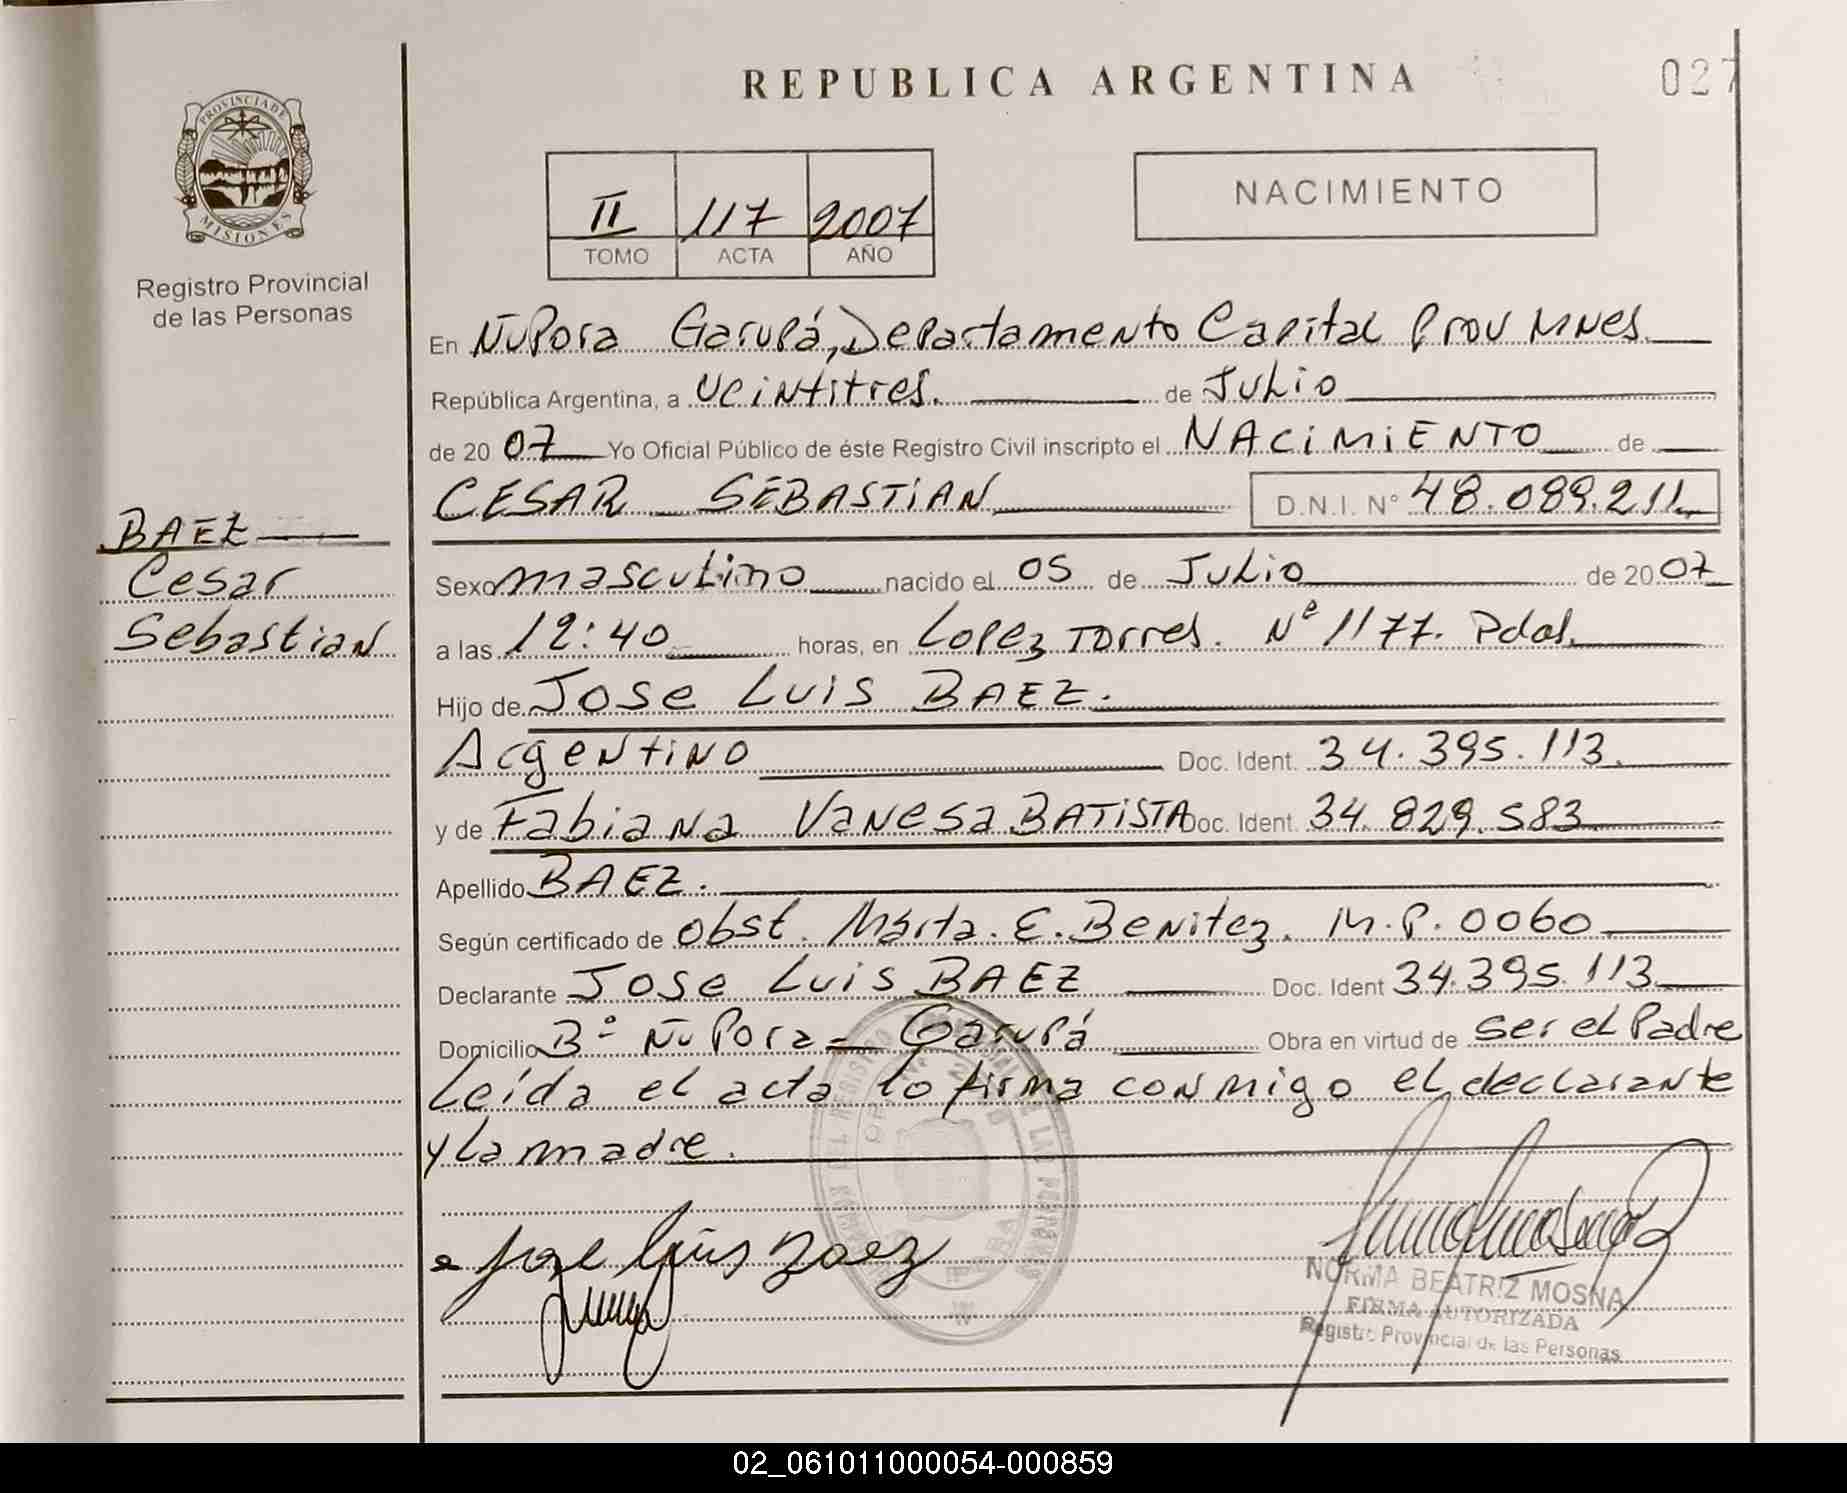 REPUBLICA ARGENTINA
027
PROVINCIA DE
MISIONES
Registro Provincial
de las Personas
II 117 2007
TOMO ACTA AÑO
NACIMIENTO
En ÑuPora Garupá, Departamento Capital Prov Mnes.
República Argentina, a veintitres. de Julio
de 2007 Yo Oficial Público de éste Registro Civil inscripto el NACIMIENTO de
CESAR SEBASTIAN D.N.I. N° 48.089.211
BAEZ
Cesar
Sebastian
Sexo masculino nacido el 05 de Julio de 2007
a las 12:40 horas, en Lopez Torres. Nº 1177. Pdas.
Hijo de Jose Luis BAEZ.
Argentino Doc. Ident. 34.395.113.
y de Fabiana Vanesa BATISTA Doc. Ident. 34.829.583
Apellido BAEZ.
Según certificado de obst. Marta. E. Benitez. M.P. 0060
Declarante Jose Luis BAEZ Doc. Ident 34.395.113
Domicilio B° Ñu Pora - Garupá Obra en virtud de ser el Padre
Leída el acta lo firma conmigo el declarante
y la madre.
Jose Luis Baez
NORMA BEATRIZ MOSNA
FIRMA AUTORIZADA
Registro Provincial de las Personas
02_061011000054-000859